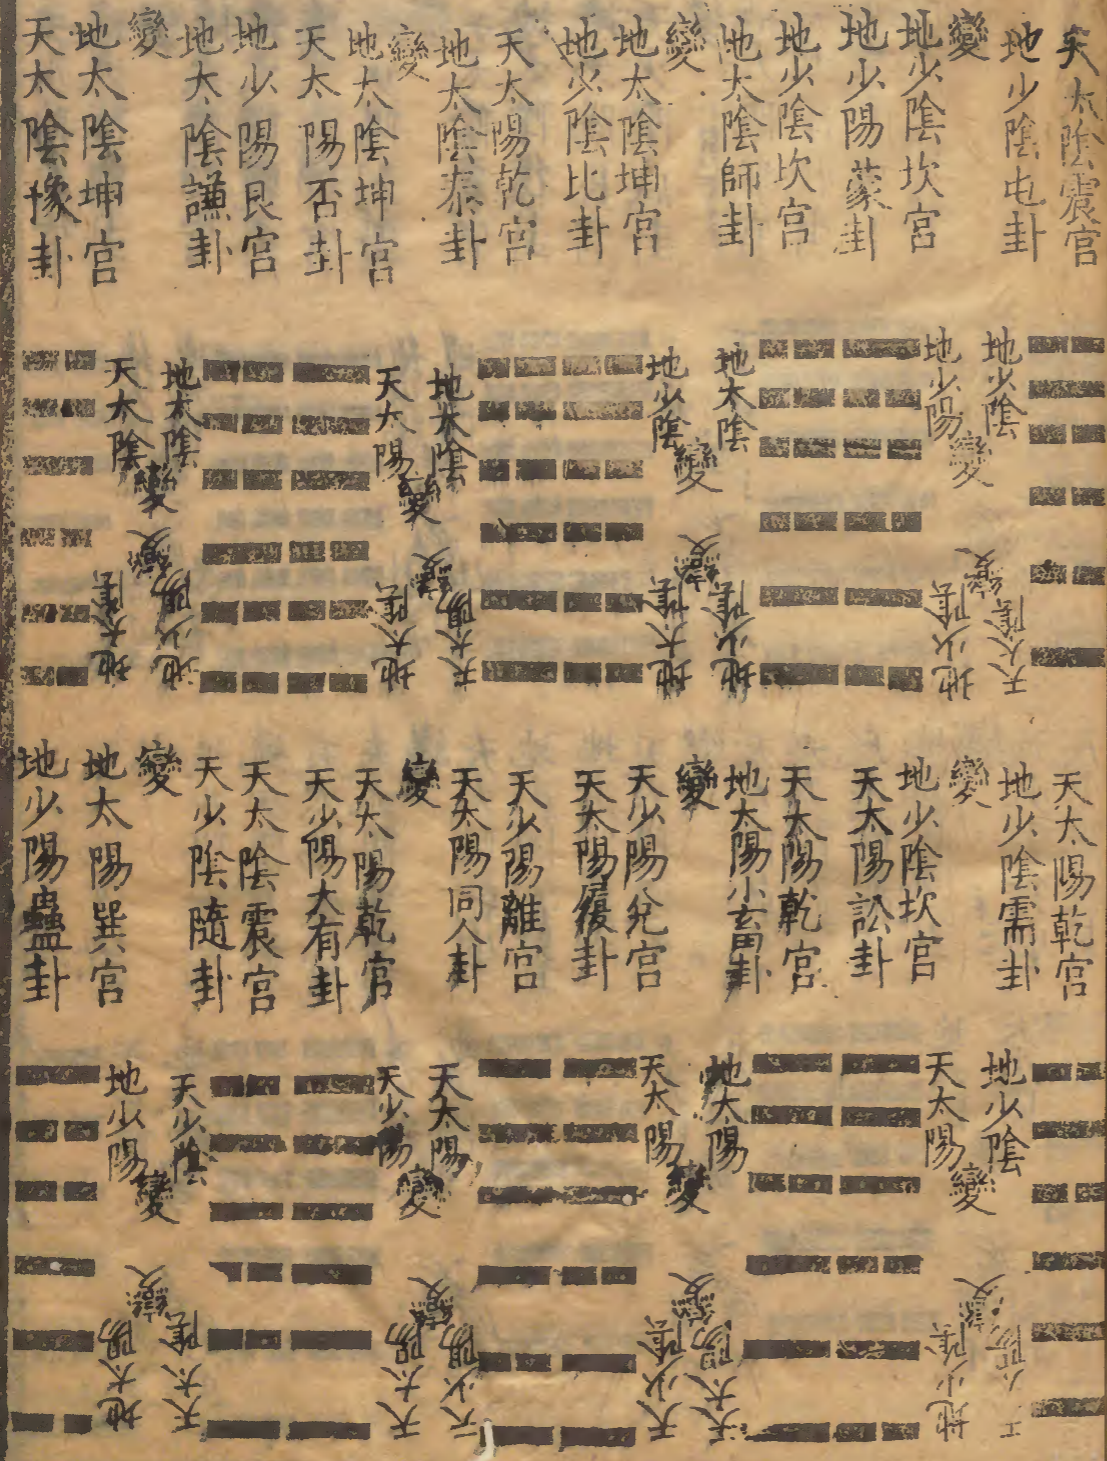 天太陰震宮
地少陰屯卦
變
地少陰坎宮
地少陽蒙卦
地少陰坎宮
地太陰師卦
變
地太陰坤宮
地少陰比卦
天太陽乾宮
地太陰泰卦
變
地太陰坤宮
天太陽否卦
地少陽艮宮
地太陰謙卦
變
地太陰坤宮
天太陰豫卦
地少陰
地少陽
變
天太陰
地少陰
變
地太陰
地少陰
變
地少陰
地太陰
變
地太陰
天太陽
變
天太陽
地太陰
變
地太陰
天太陰
變
地少陽
地太陰
變
天太陽乾宮
地少陰需卦
變
地少陰坎宮
天太陽訟卦
天太陽乾宮
地太陽小畜卦
變
天少陽兌宮
天太陽履卦
天少陽離宮
天太陽同人卦
變
天太陽乾宮
天少陽大有卦
天太陰震宮
天少陰隨卦
變
地太陽巽宮
地少陽蠱卦
地少陰
天太陽
變
地少陰
變
地太陽
天太陽
變
天太陽
天少陰
變
天太陽
天少陽
變
天少陽
天太陽
變
天少陰
地少陽
變
天太陰
地太陽
變